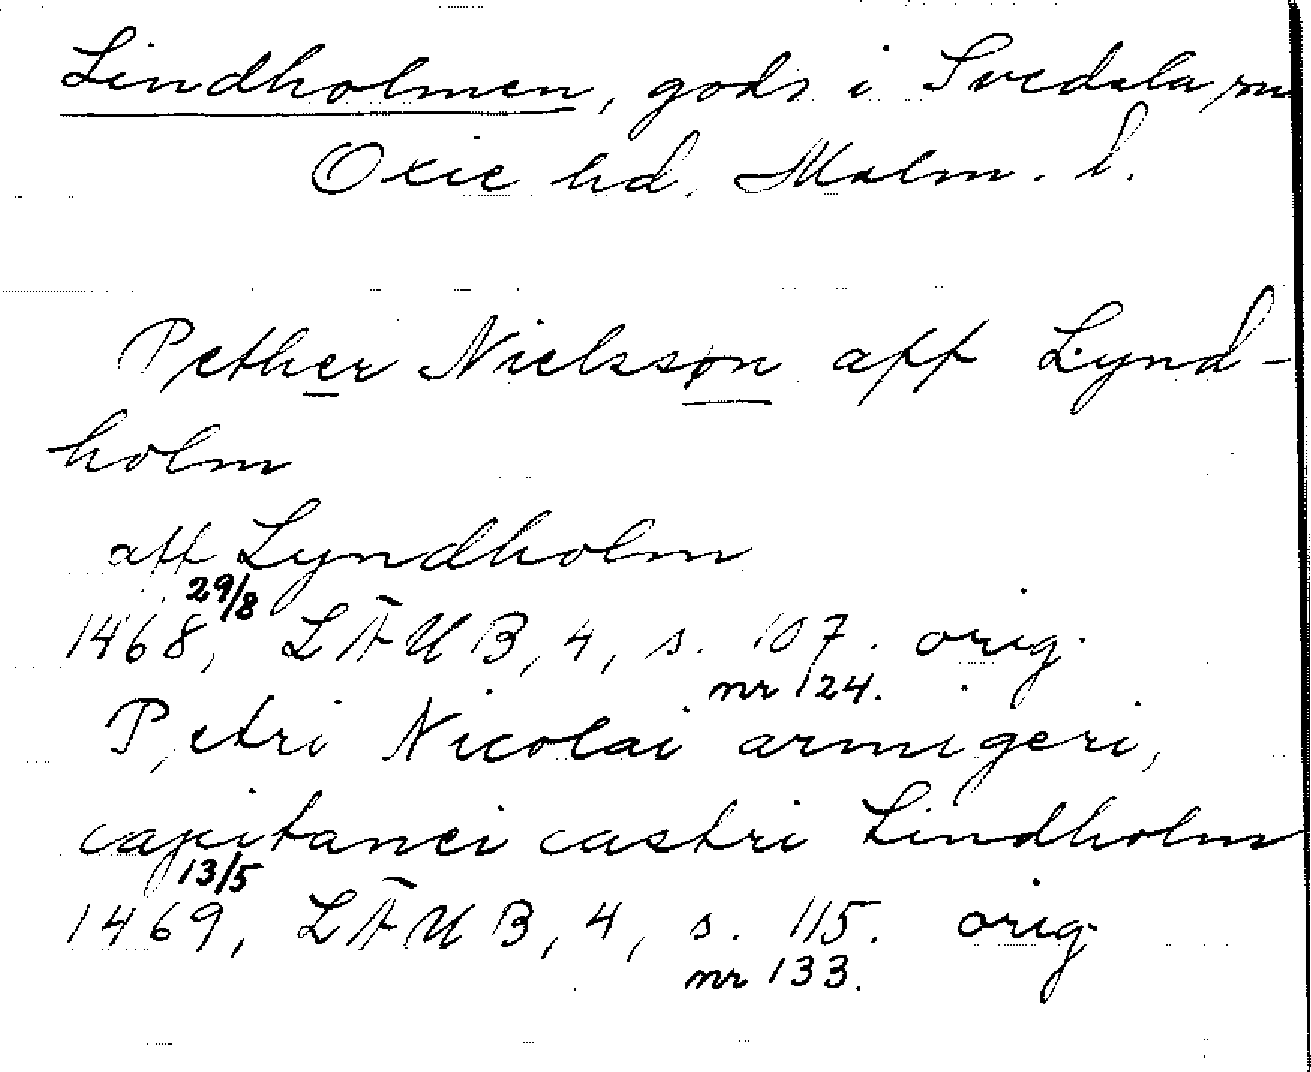 Lindholmen, gods i Svedala sn
Oxie hd. Malm. l.
Pether Nielsson aff Lynd-
holm
aff Lyndholm
29/8
1468, LÄUB, 4, s. 107. orig.
nr 124.
Petri Nicolai armigeri,
capitanei castri Lindholm
13/5
1469, LÄUB, 4, s. 115. orig
nr 133.